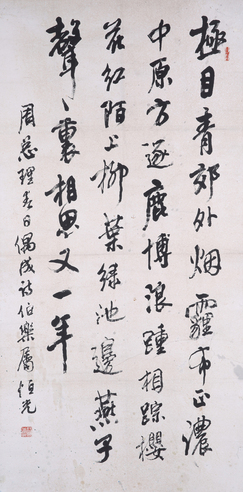 極目青郊外烟霾布正濃
中原方逐鹿博浪踵相踪櫻
花紅陌上柳葉綠池邊燕子
聲〻裏相思又一年
周总理春日偶成詩伯樂屬恒光